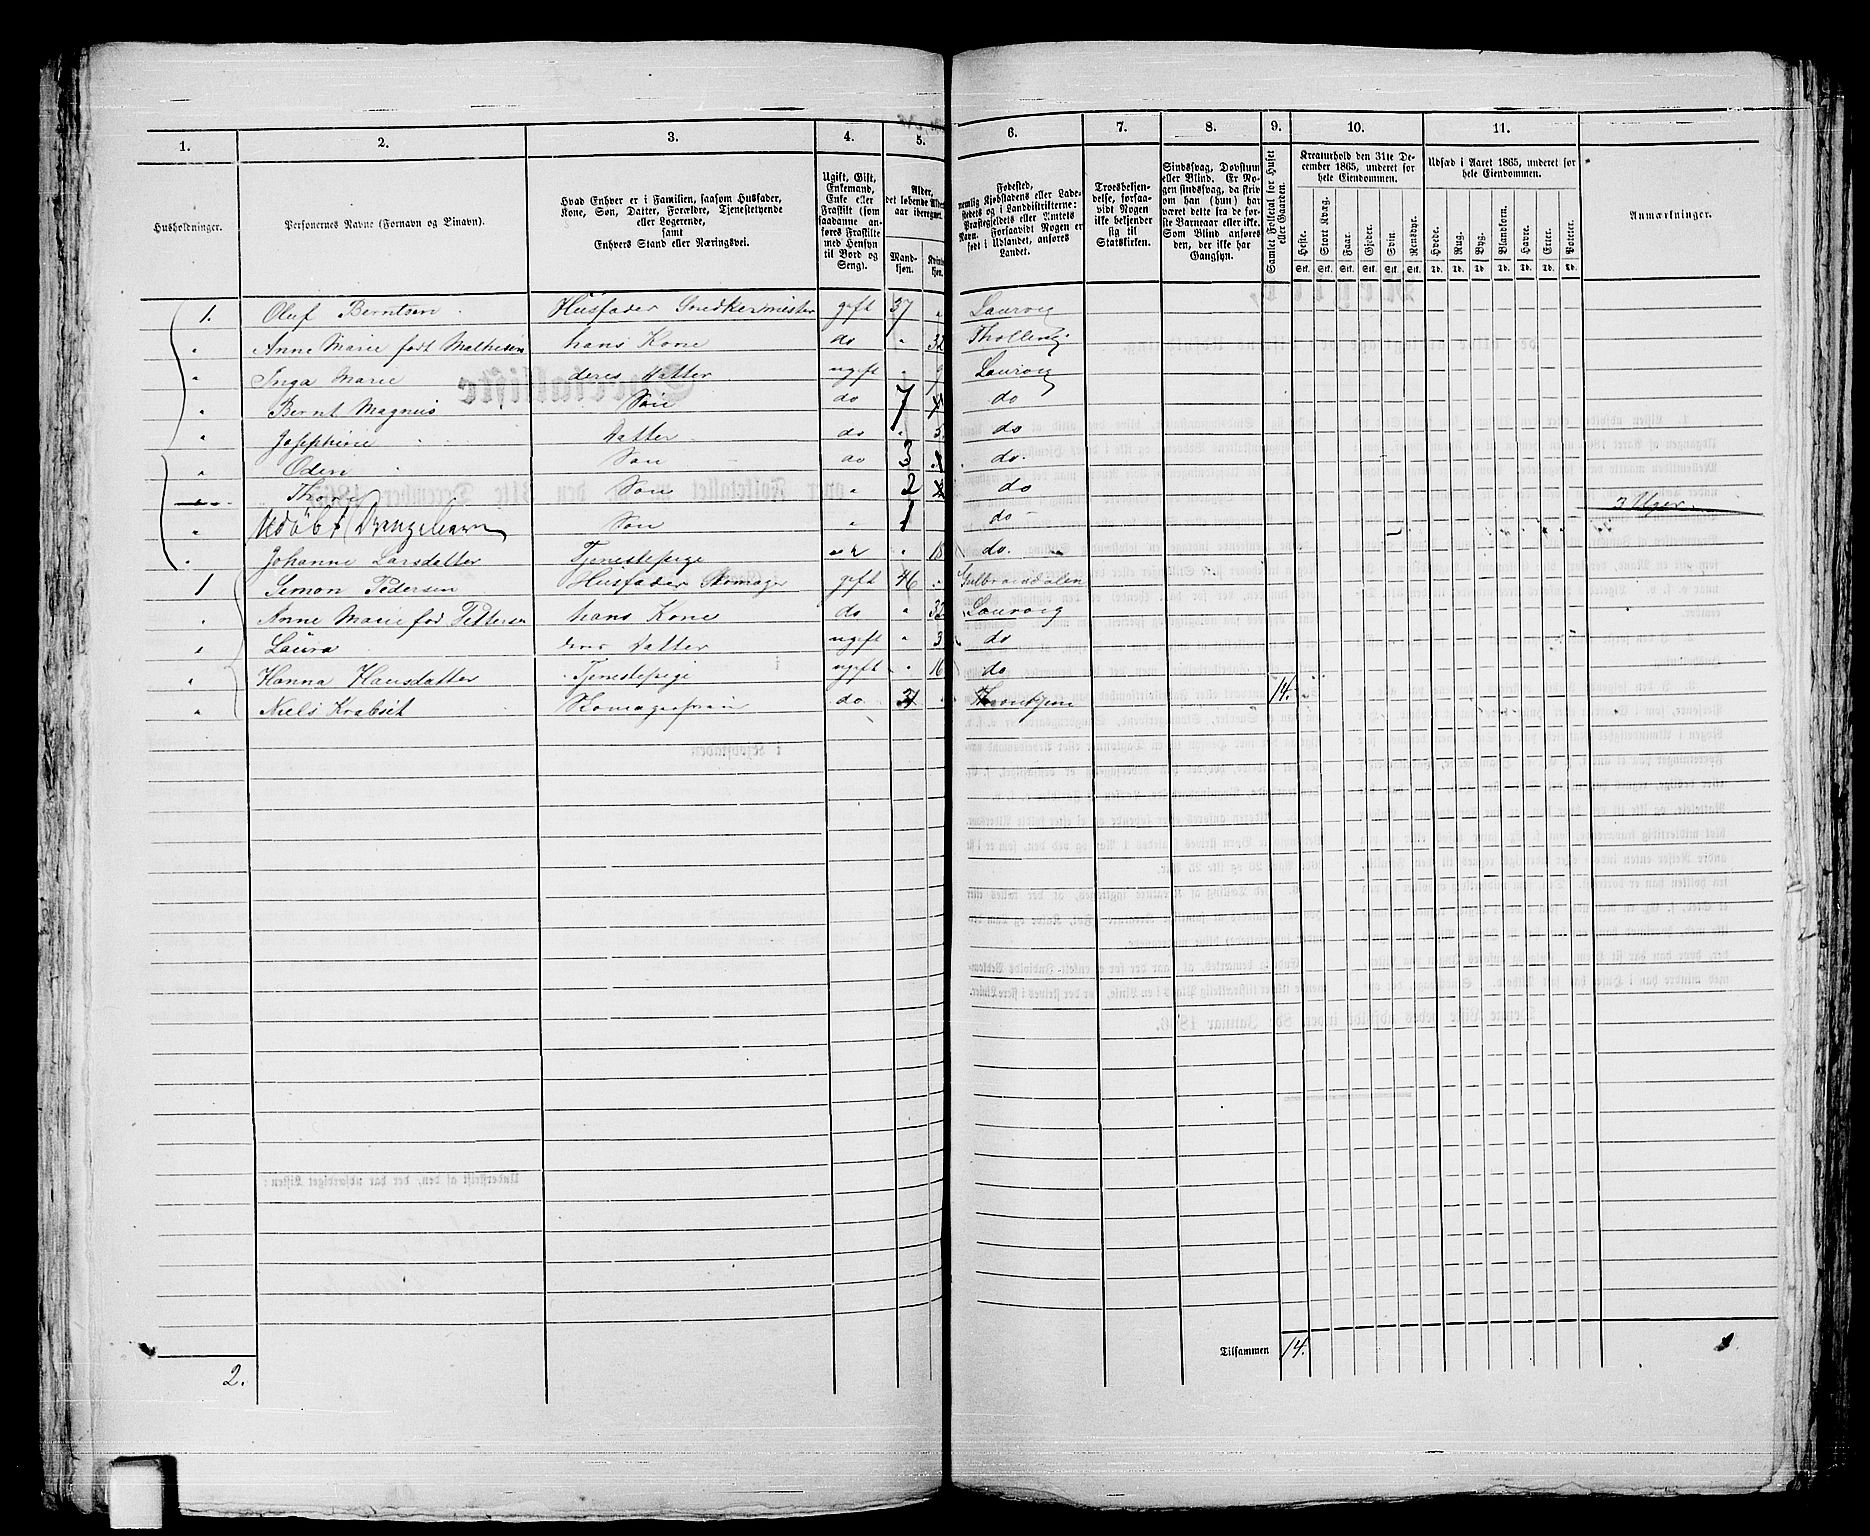 1. 2. 3. 4. 5. 6. 7. 8. 9. 10. 11.
Husholdninger.
Personernes Navne (Fornavn og Tilnavn).
Hvad Enhver er i Familien, saasom Husfader,
Kone, Søn, Datter, Forældre, Tjenestetyende
eller Logerende,
samt
Enhvers Stand eller Næringsvei.
Ugift, Gift,
Enkemand,
Enke eller
Fraskilt (som
saadanne an-
føres Fraskilte
med Hensyn
til Bord og
Seng).
Alder,
det løbende Alders-
aar iberegnet.
Mand-
kjøn.
Kvinde-
kjøn.
Fødested,
nemlig Kjøbstadens eller Lade-
stedets og i Landdistrikterne:
Præstegjeldets eller Amtets
Navn. Forsaavidt Nogen er
født i Udlandet, anføres
Landet.
Troesbekjen-
delse, forsaa-
vidt Nogen
ikke bekjender
sig til
Statskirken.
Sindssvag, Døvstum
eller Blind. Er No-
gen sindssvag, da skriv
om han (hun) har
været dette fra de før-
ste Barneaar eller ikke.
Som Blind anføres
den, der ikke har
Gangsyn.
Samlet Folketal for Huset
eller Gaarden.
Kreaturhold den 31te De-
cember 1865, underet for
hele Eiendommen.
Heste. Stort Kvæg. Faar. Gjeder. Svin. Rensdyr.
Stk. Stk. Stk. Stk. Stk. Stk.
Udsæd i Aaret 1865, underet for
hele Eiendommen.
Hvede. Rug. Byg. Blandkorn. Havre. Erter. Poteter.
Td. Td. Td. Td. Td. Td. Td.
Anmærkninger.
1. Oluf Berntsen Husfader Snedkermester gift 37 " Laurvig
" Anne Marie født Mathisen hans Kone do " 32 Thølling
" Inga Marie deres Datter ugift " 9 Laurvig
" Bernt Magnus Søn do 7 do
" Josephine Datter do " 5 do
" Oden Søn do 3 do.
" Søn " 2 do
" Udøbt Drengebarn Søn " 1 do 3 Uger
" Johanne Larsdatter Tjenestepige " 18 do.
1 Simon Pedersen Husfader Skomager gift 46 " Gulbrandsdalen
" Anne Marie fød Pettersen hans Kone do " 32 Laurvig
" Laura deres Datter ugift " 3 do
" Hanna Hansdatter Tjenestepige ugift " 16 do
" Niels Krabset do " 14.
2. Tilsammen 14.